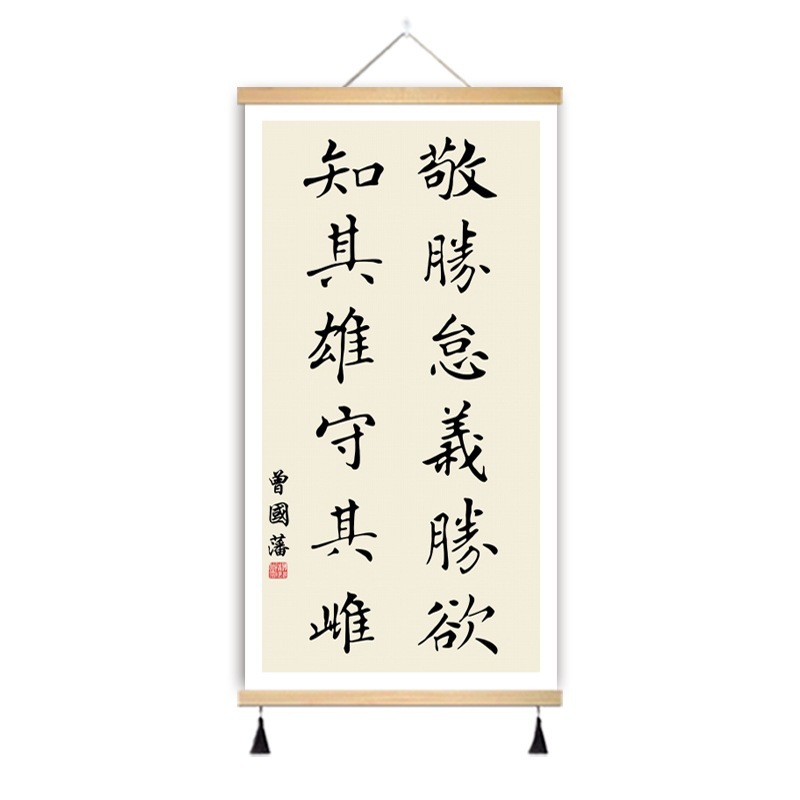 敬勝怠義勝欲
知其雄守其雌
曾國藩